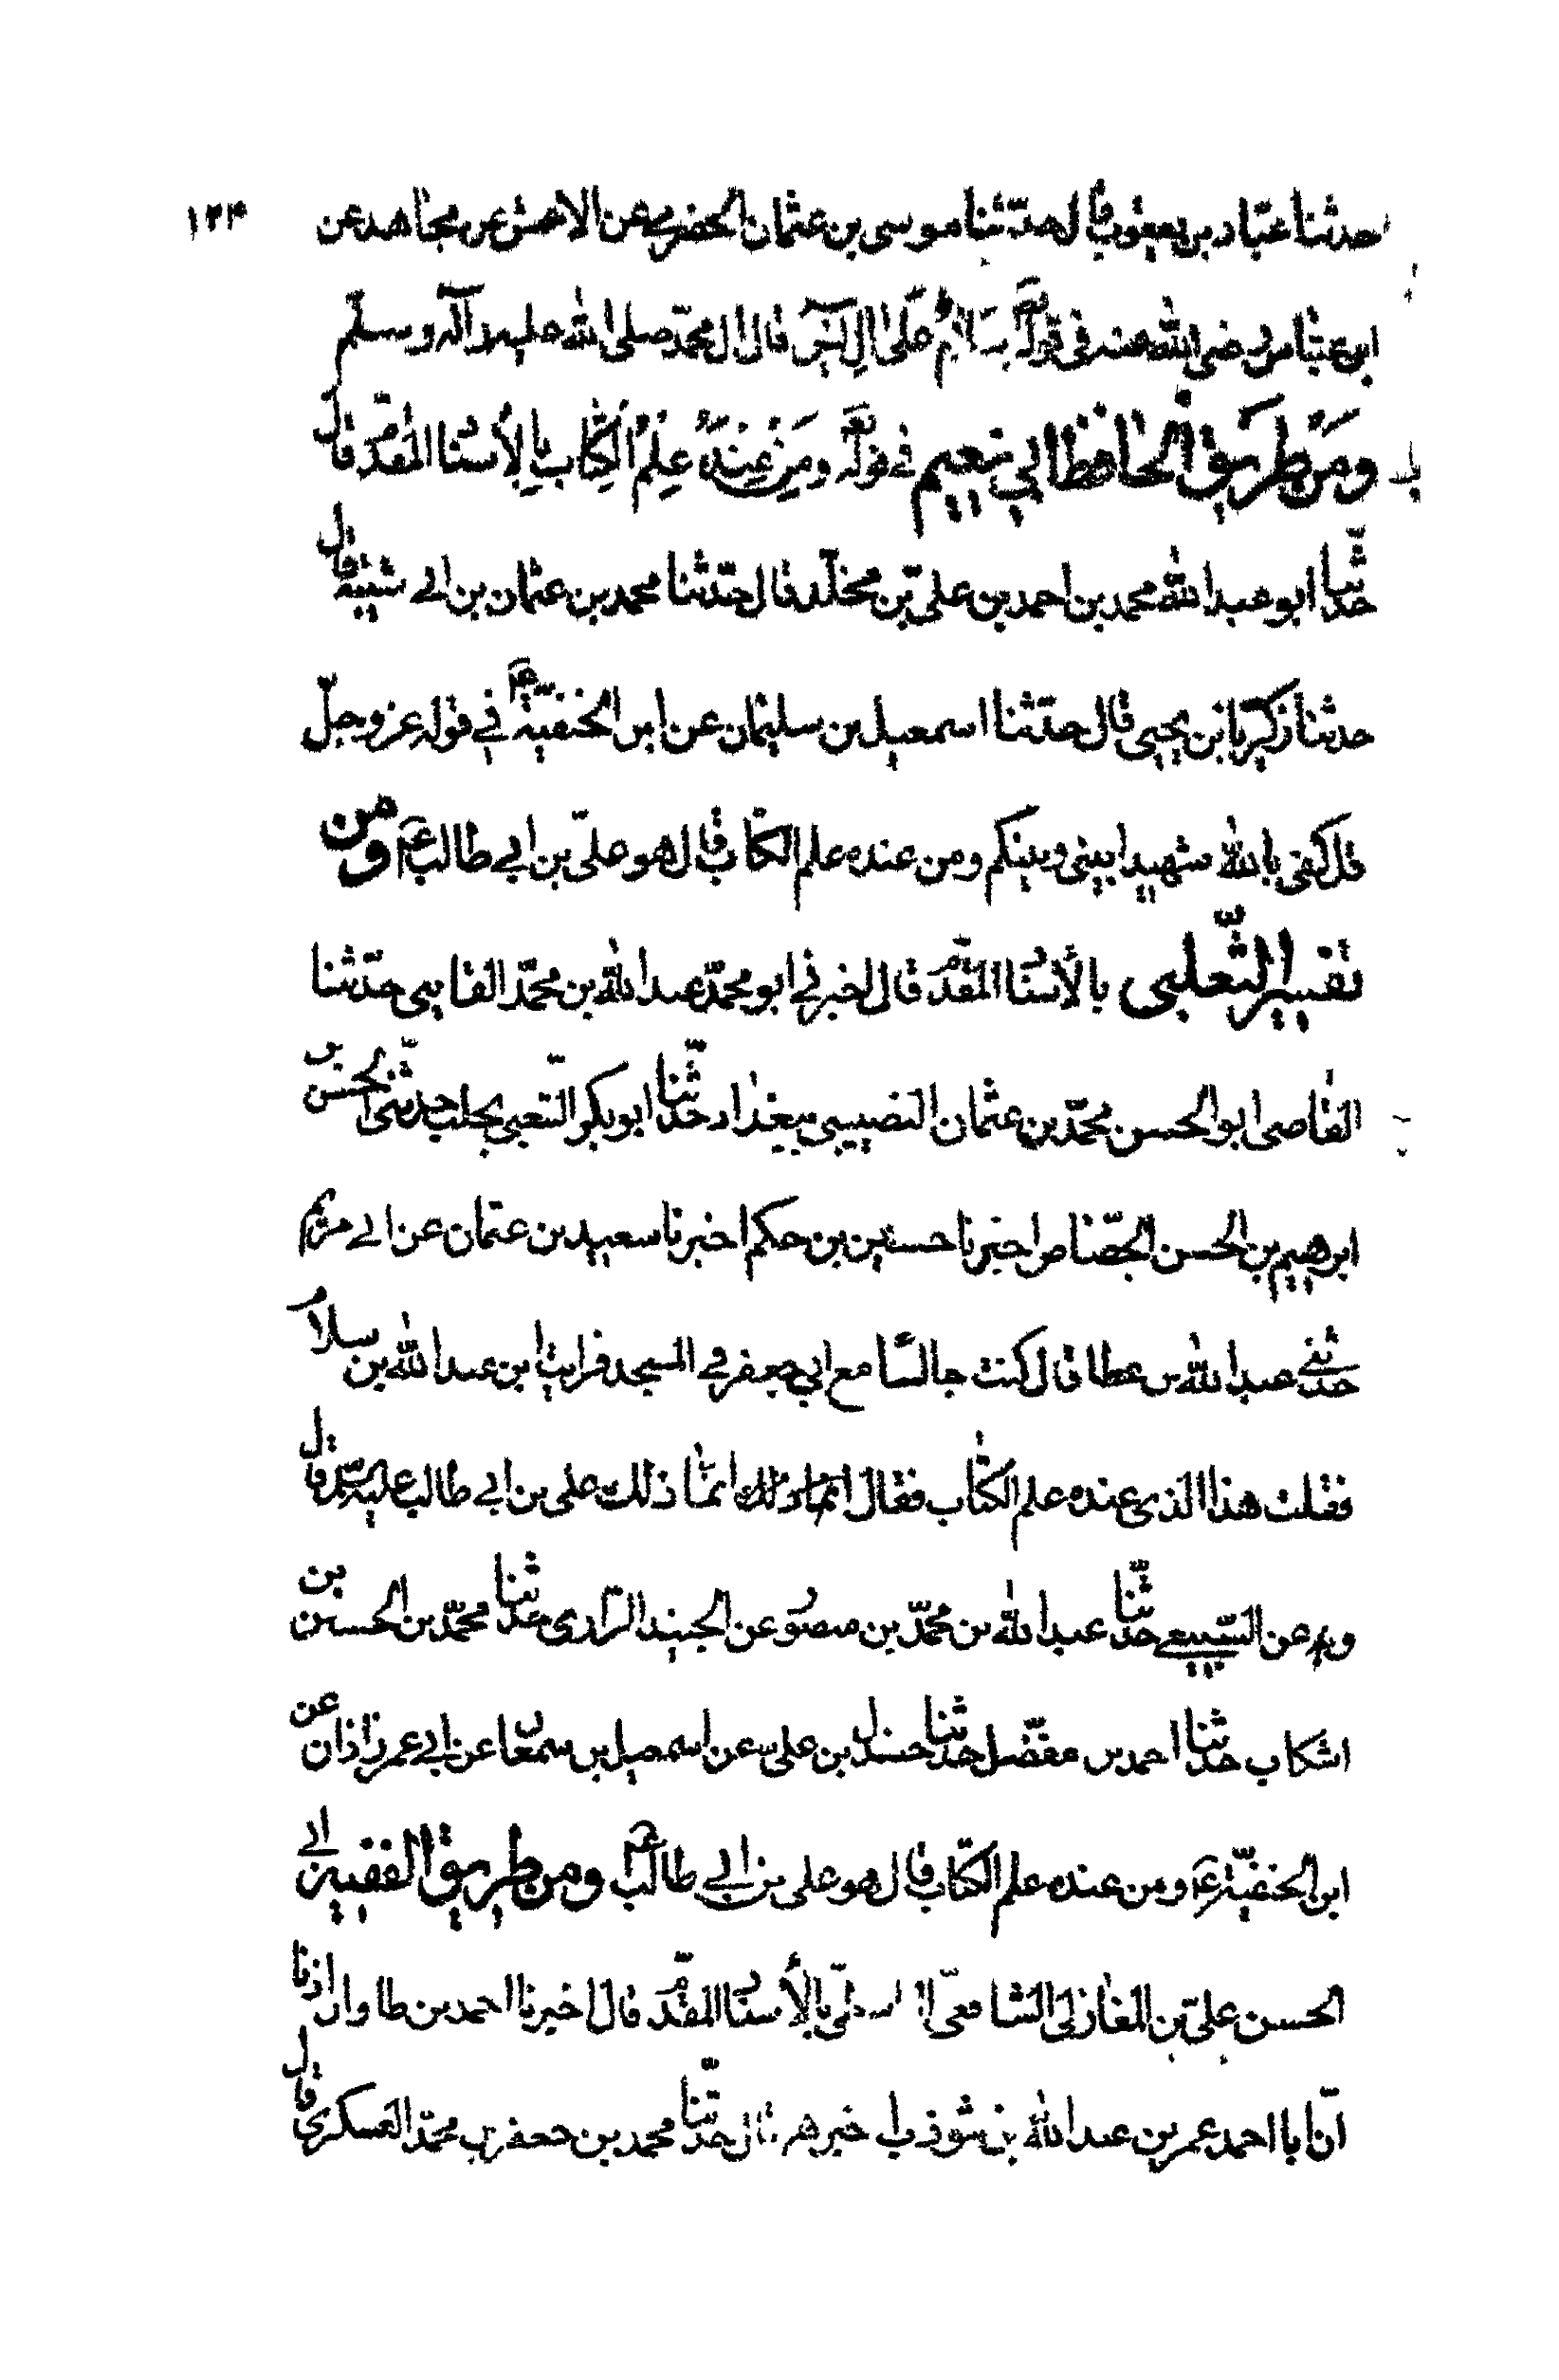 ١٢٤
حدثنا عبّاد بن يعقوب قال حدّثنا موسى بن عثمان الحضرمي عن الاعمش عن مجاهد عن
ابن عباس رضى الله عنه فى قوله سَلامٌ عَلى الِ ياسين قال ال محمّد صلى الله عليه وآله وسلّم
ومن طريق الحافظ ابي نعيم في قوله ومن عِندَهُ عِلمُ الكِتاب بالأسناد المقدّم قال
حدّثنا ابو عبد الله محمد بن احمد بن علىّ بن مخلّد قال حدّثنا محمد بن عثمان بن ابي شيبة قال
حدثنا زكريّا بن يحيى قال حدّثنا اسمعيل بن سليمان عن ابن الحنفيّة في قوله عز وجلّ
قل كفى بالله شهيدا بينى وبينكم ومن عنده علم الكتاب قال هو علىّ بن ابي طالب ع ومن
تفسير الثّعلبى بالأسناد المقدّم قال اخبرنى ابو محمّد عبد الله بن محمّد القاينى حدّثنا
القاضى ابو الحسن محمّد بن عثمان النصيبى ببغداد حدّثنا ابو بكر السّبيعى بحلب حدّثنى الحسن بن
ابرهيم بن الحسن الجصّاص اخبرنا حسين بن حكم اخبرنا سعيد بن عثمان عن ابي مريم
حدّثنى عبد الله بن عطا قال كنت جالسًا مع ابي جعفر في المسجد فرايت ابن عبد الله بن سلام
فقلت هذا الذى عنده علم الكتاب فقال انّما ذلك على بن ابي طالب عليه السّلام قال
وبه عن السّبيعي حدّثنا عبد الله بن محمّد بن منصور عن الجنيد الرّازى حدّثنا محمّد بن الحسين بن
اشكاب حدّثنا احمد بن مفضّل حدّثنا جندل بن على عن اسمعيل بن سمعان عن ابي عمر زاذان عن
ابن الحنفيّة ع ومن عنده علم الكتاب قال هو على بن ابي طالب ع ومن طريق الفقيه ابي
الحسن علىّ بن المغازلى الشافعىّ بالأسناد المقدّم قال اخبرنا احمد بن طاوان اذنا
انّ ابا احمد عمر بن عبد الله بن شوذب اخبرهم قال حدّثنا محمد بن جعفر بن محمّد العسكرى قال